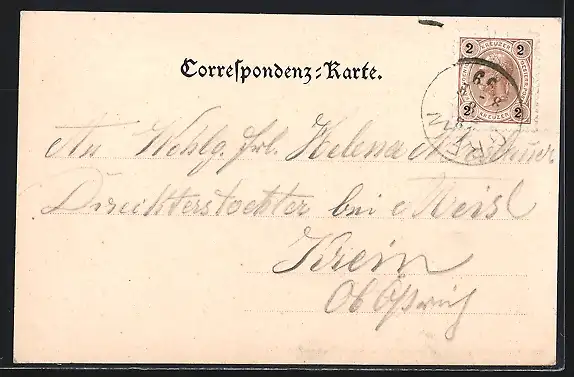 Correspondenz-Karte.
2 KREUZER 2
2 KREUZER 2
An Wohlg. Frl. Helena
Direktterstochter bei Meisl
Krein
Ob Östrich